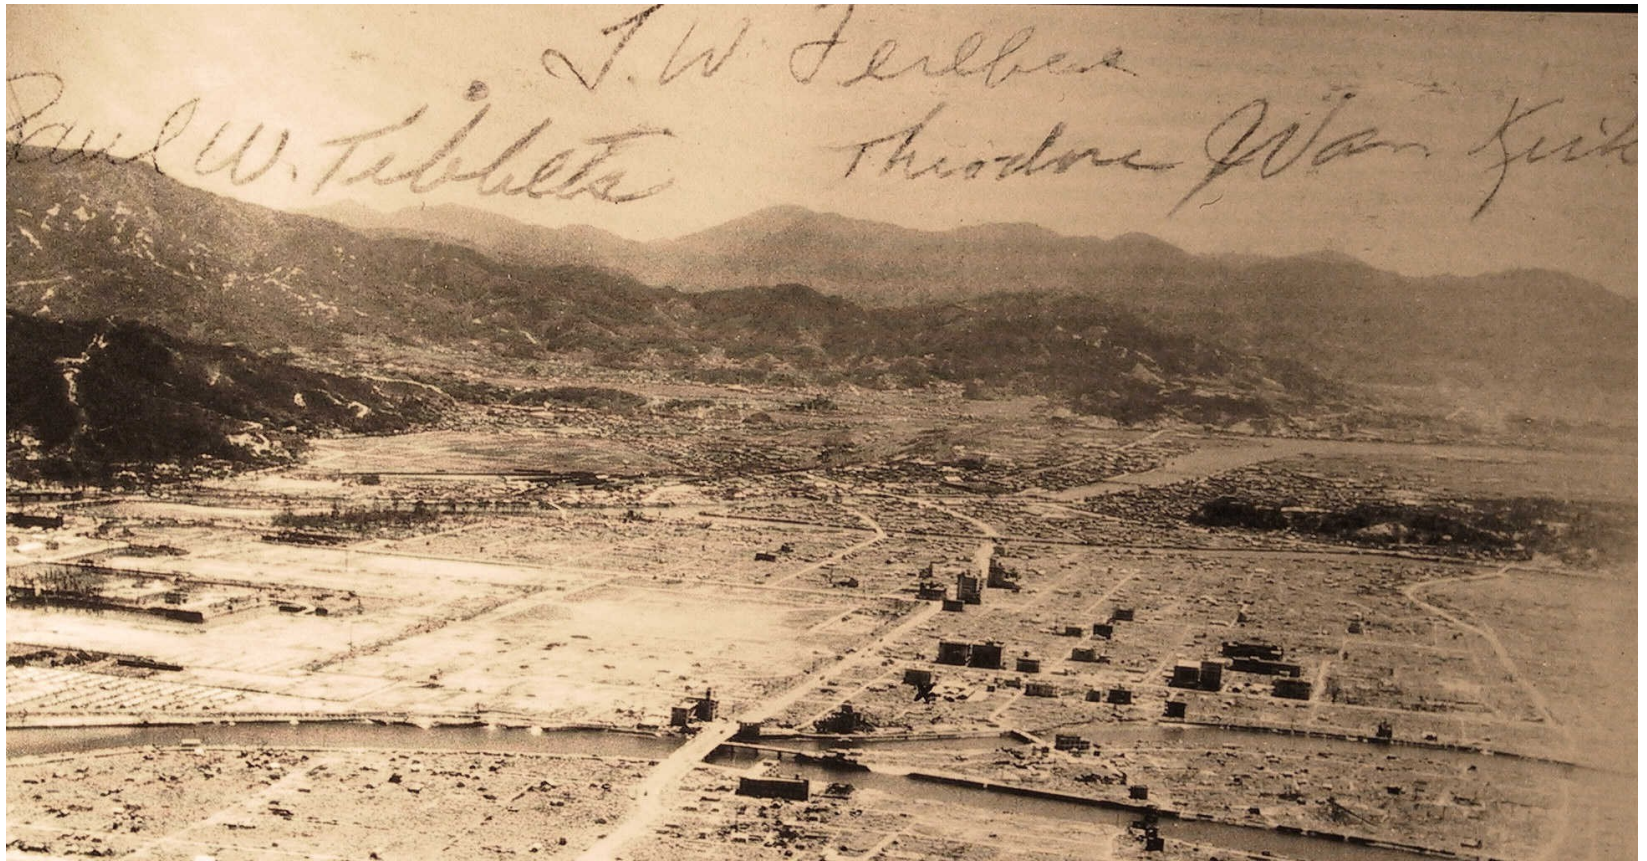 T. W Ferebee
Paul W. Tibbets
Theodore J Van Kirk